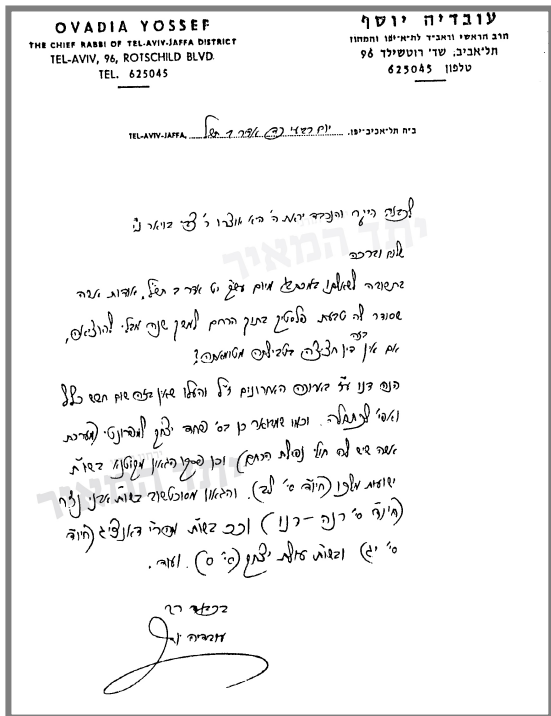 OVADIA YOSSEF
THE CHIEF RABBI OF TEL-AVIV-JAFFA DISTRICT
TEL-AVIV, 96, ROTSCHILD BLVD.
TEL. 625045
עובדיה יוסף
הרב הראשי וראב״ד לת״א-יפו והמחוז
תל-אביב, שד׳ רוטשילד 96
טלפון 625045
TEL-AVIV-JAFFA, יום רביעי כד אדר ב תש״ל ב״ה תל-אביב-יפו.
היקר והנכבד יראת ה׳ היא אוצרו ר׳ צבי בויאר נ״י
יתד המאיר
שלום וברכה
בתשובה לשאלתו במכתבו מיום עש״ק יט אדר ב תש״ל, אודות אשה
שסודר לה טבעת פלסטיק בתוך הרחם למשך שנה מבלי להוציאה,
אם אין בזה דין חציצה בטבילתה מטומאתה?
הנה דנו ע״ז בארוכה האחרונים ז״ל והעלו שאין בזה שום חשש כלל
ואפי׳ לכתחלה. וכמו שמבואר כן בס׳ פחד יצחק למפרונטי (מערכת
אשה שיש לה חולי נפילת הרחם) וכן פסקו הגאון מקוטנא בשו״ת
יתד המאיר
ישועות מלכו (חיו״ד ס׳ לב). והגאון מסוכטשוב בשו״ת אבני נזר
(חיו״ד ס׳ רנה-רנו) וכ״כ בשו״ת מהר״י דאנציג (חיו״ד
ס׳ יג) ובשו״ת עולת יצחק (ס׳ ס). ועוד.
בכבוד רב
עובדיה יוסף